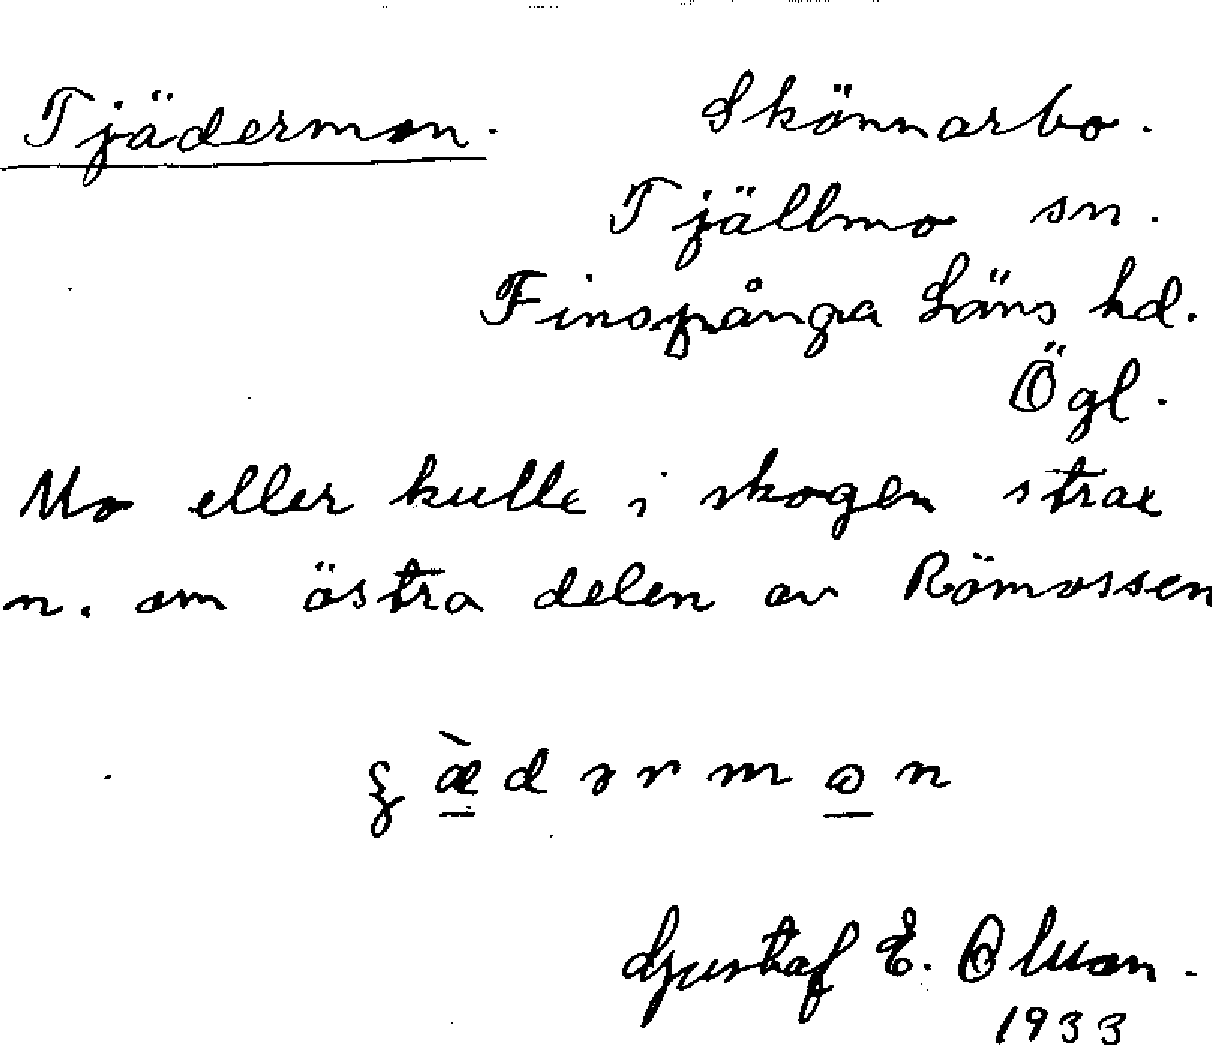 Tjädermon. Skönnarbo.
Tjällmo sn.
Finspånga Läns hd.
Ögl.
Mo eller kulle i skogen strax
n. om östra delen av Römossen
Gustaf E. Olsson.
1933